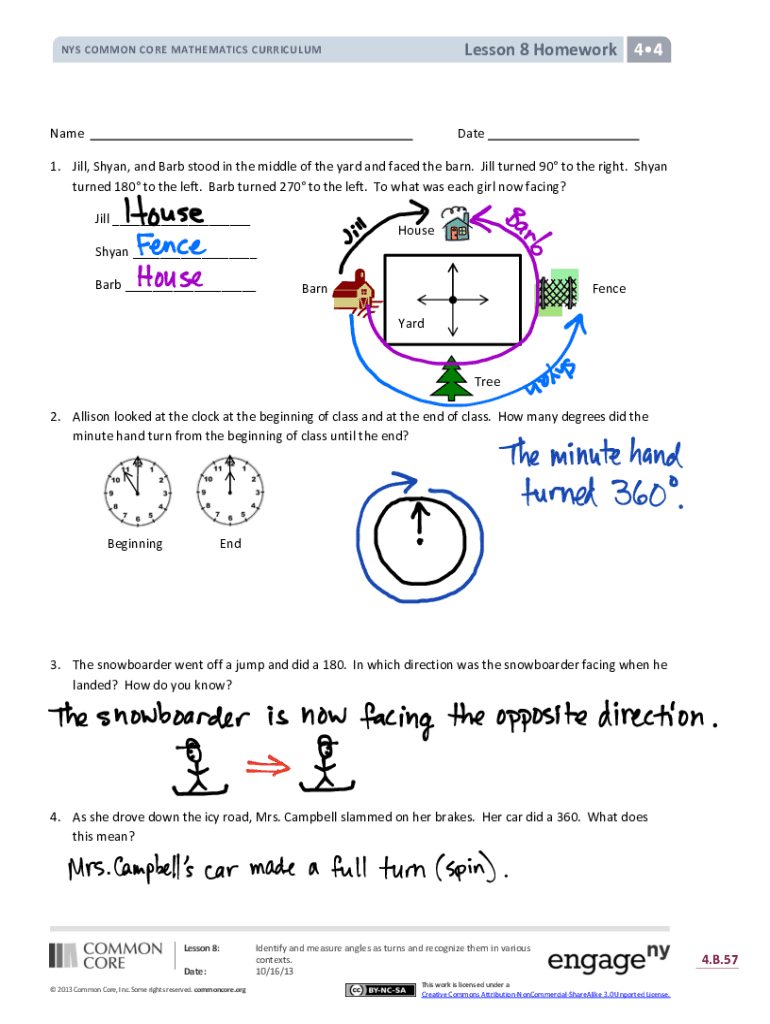 NYS COMMON CORE MATHEMATICS CURRICULUM
Lesson 8 Homework 4•4
Name Date
1. Jill, Shyan, and Barb stood in the middle of the yard and faced the barn. Jill turned 90° to the right. Shyan
turned 180° to the left. Barb turned 270° to the left. To what was each girl now facing?
Jill House
Shyan Fence
Barb House
Jill
House
Barb
Barn
Fence
Yard
Tree
Shyan
2. Allison looked at the clock at the beginning of class and at the end of class. How many degrees did the
minute hand turn from the beginning of class until the end?
The minute hand
turned 360°.
12 1 2 3 4 5 6 7 8 9 10 11
12 1 2 3 4 5 6 7 8 9 10 11
Beginning End
3. The snowboarder went off a jump and did a 180. In which direction was the snowboarder facing when he
landed? How do you know?
The snowboarder is now facing the opposite direction.
4. As she drove down the icy road, Mrs. Campbell slammed on her brakes. Her car did a 360. What does
this mean?
Mrs. Campbell's car made a full turn (spin).
COMMON
CORE
Lesson 8:
Date:
Identify and measure angles as turns and recognize them in various
contexts.
10/16/13
engageny
4.B.57
© 2013 Common Core, Inc. Some rights reserved. commoncore.org
cc BY-NC-SA
This work is licensed under a
Creative Commons Attribution-NonCommercial-ShareAlike 3.0 Unported License.